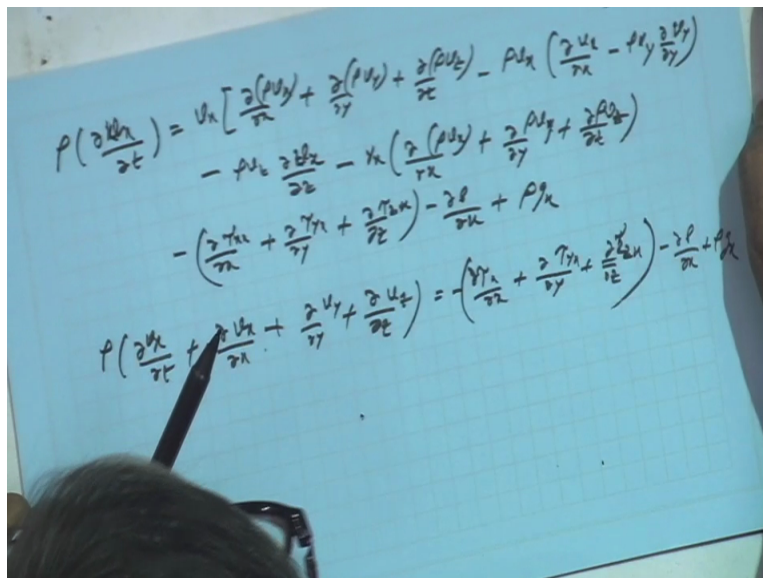 ρ(∂vx/∂t) = vx[∂(ρvx)/∂x + ∂(ρvy)/∂y + ∂(ρvz)/∂z − ρvx(∂vx/∂x − ρvy ∂vy/∂y)
− ρvz ∂vx/∂z − vx(∂(ρvx)/∂x + ∂ρvy/∂y + ∂ρvz/∂z)
−(∂τxx/∂x + ∂τyx/∂y + ∂τzx/∂z) − ∂p/∂x + ρgx
ρ(∂vx/∂t + ∂vx/∂x + ∂vy/∂y + ∂vz/∂z) = −(∂τx/∂x + ∂τyx/∂y + ∂τzx/∂z) − ∂p/∂x + ρgx